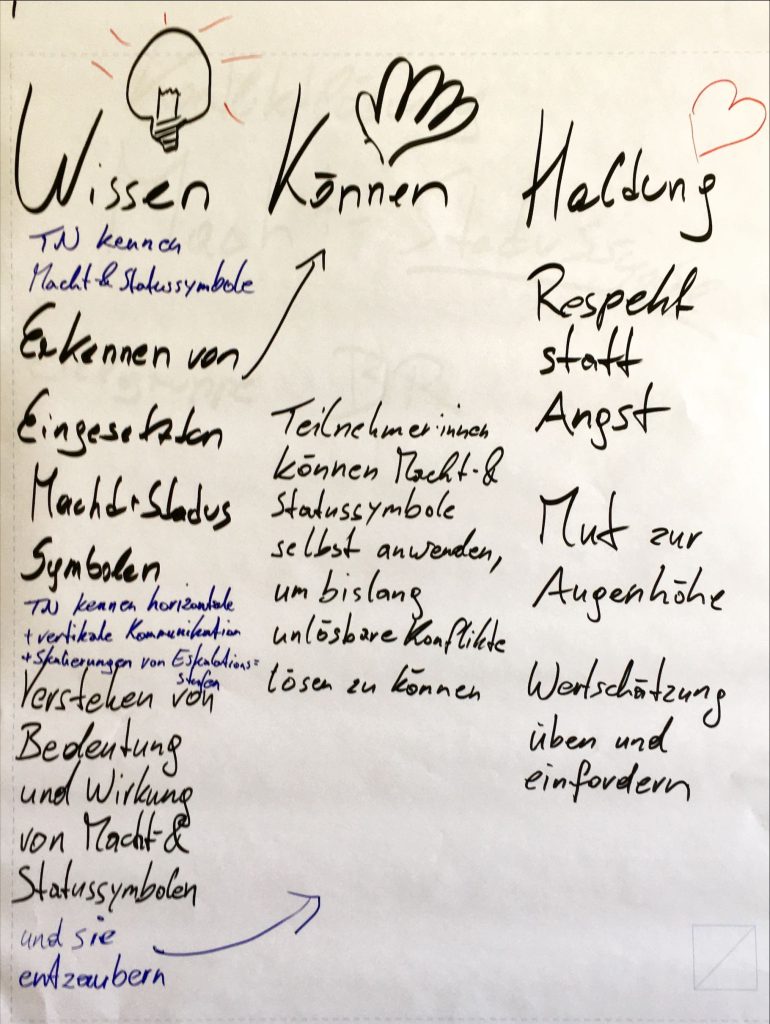 Wissen
TN kennen
Macht- & Statussymbole
Erkennen von
Eingesetzten
Macht + Status
Symbolen
TN kennen horizontale
+ vertikale Kommunikation
+ Skalierungen von Eskalations=
stufen
Verstehen von
Bedeutung
und Wirkung
von Macht- &
Statussymbolen
und sie
entzaubern
Können
Teilnehmer:innen
können Macht- &
Statussymbole
selbst anwenden,
um bislang
unlösbare Konflikte
lösen zu können
Haltung
Respekt
statt
Angst
Mut zur
Augenhöhe
Wertschätzung
üben und
einfordern